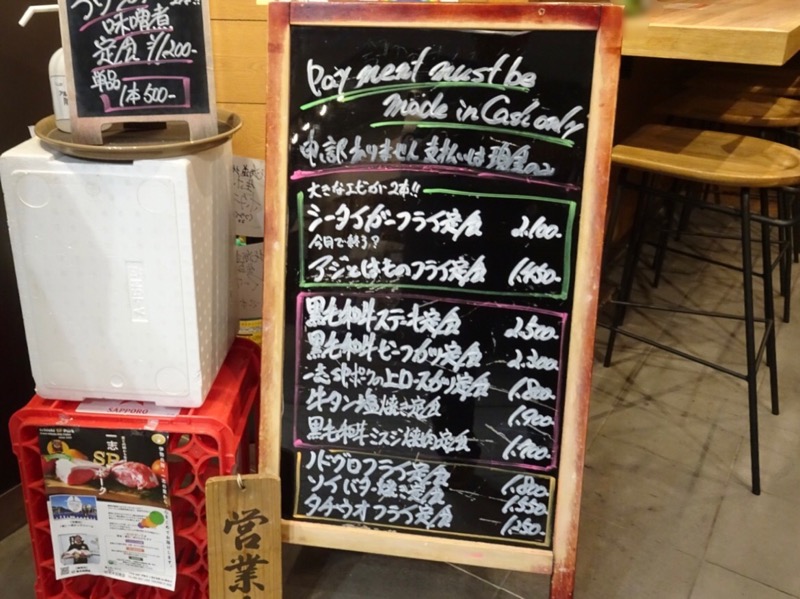 味噌煮
定食 ¥1,200-
単品
1本500-
Payment must be
made in Cash only
申訳ありません 支払いは現金のみ
大きなエビが2本!!
シータイガーフライ定食 2,100-
今日で終り?
アジとはものフライ定食 1,450-
黒毛和牛ステーキ定食 2,500-
黒毛和牛ビーフカツ定食 2,300-
一志SPポークの上ロースカツ定食 1,800-
牛タン塩焼き定食 1,900-
黒毛和牛ミスジ焼肉定食 1,900-
ノドグロフライ定食 1,800-
ソイバター焼き定食 1,550-
タチウオフライ定食 1,250-
SAPPORO
一志
SP
営業